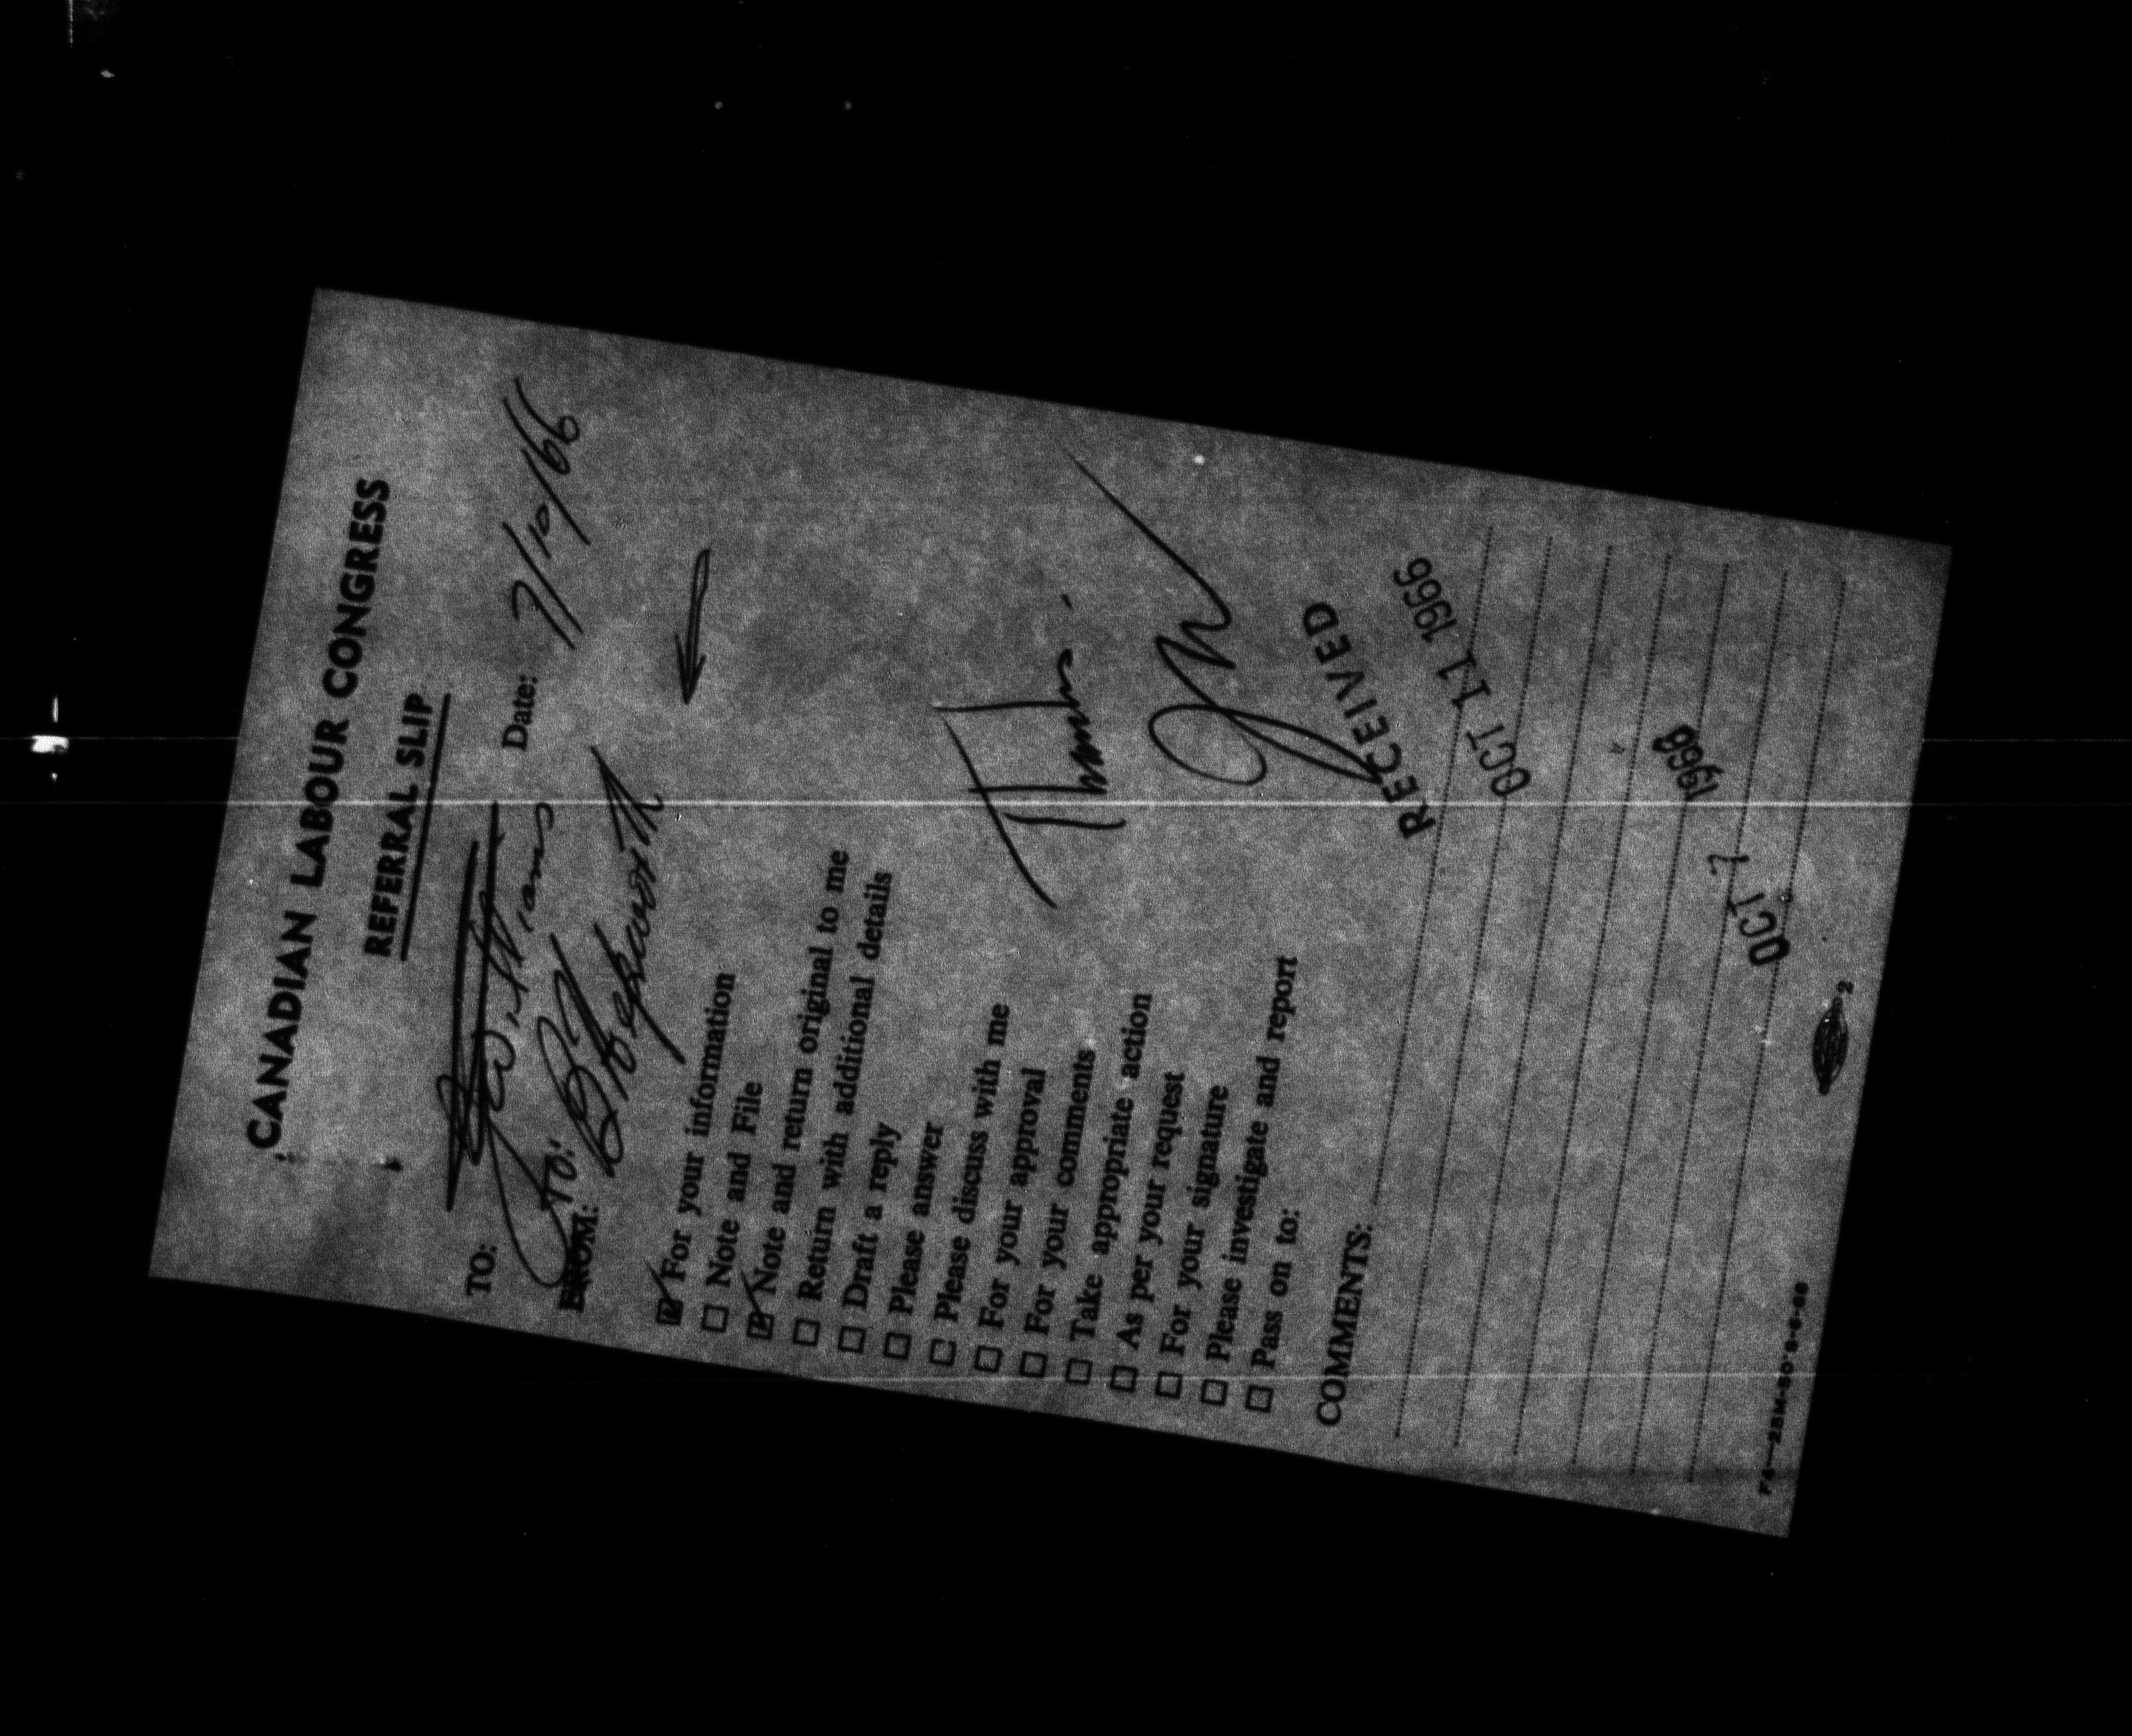 CANADIAN LABOUR CONGRESS
REFERRAL SLIP
TO: Williams
Date: 7/10/66
FROM: TO: B Hepworth
For your information
Note and File
Note and return original to me
Return with additional details
Draft a reply
Please answer
Please discuss with me
For your approval
For your comments
Take appropriate action
As per your request
For your signature
Please investigate and report
Pass on to:
Thanks.
RECEIVED
OCT 11 1966
COMMENTS:
OCT 7 1966
2